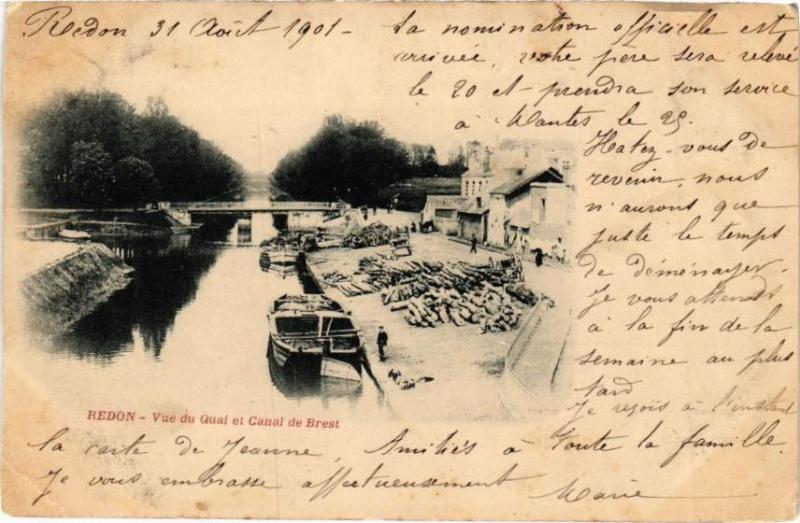 Redon 31 Août 1901 - La nomination officielle est
arrivée, votre père sera relevé
le 20 et prendra son service
à Nantes le 25.
Hatez-vous de
revenir, nous
n'aurons que
juste le temps
de déménager.
Je vous attends
à la fin de la
semaine au plus
tard
Je reçois à l'instant
REDON - Vue du Quai et Canal de Brest
la carte de Jeanne. Amitiés à toute la famille.
Je vous embrasse affectueusement Marie